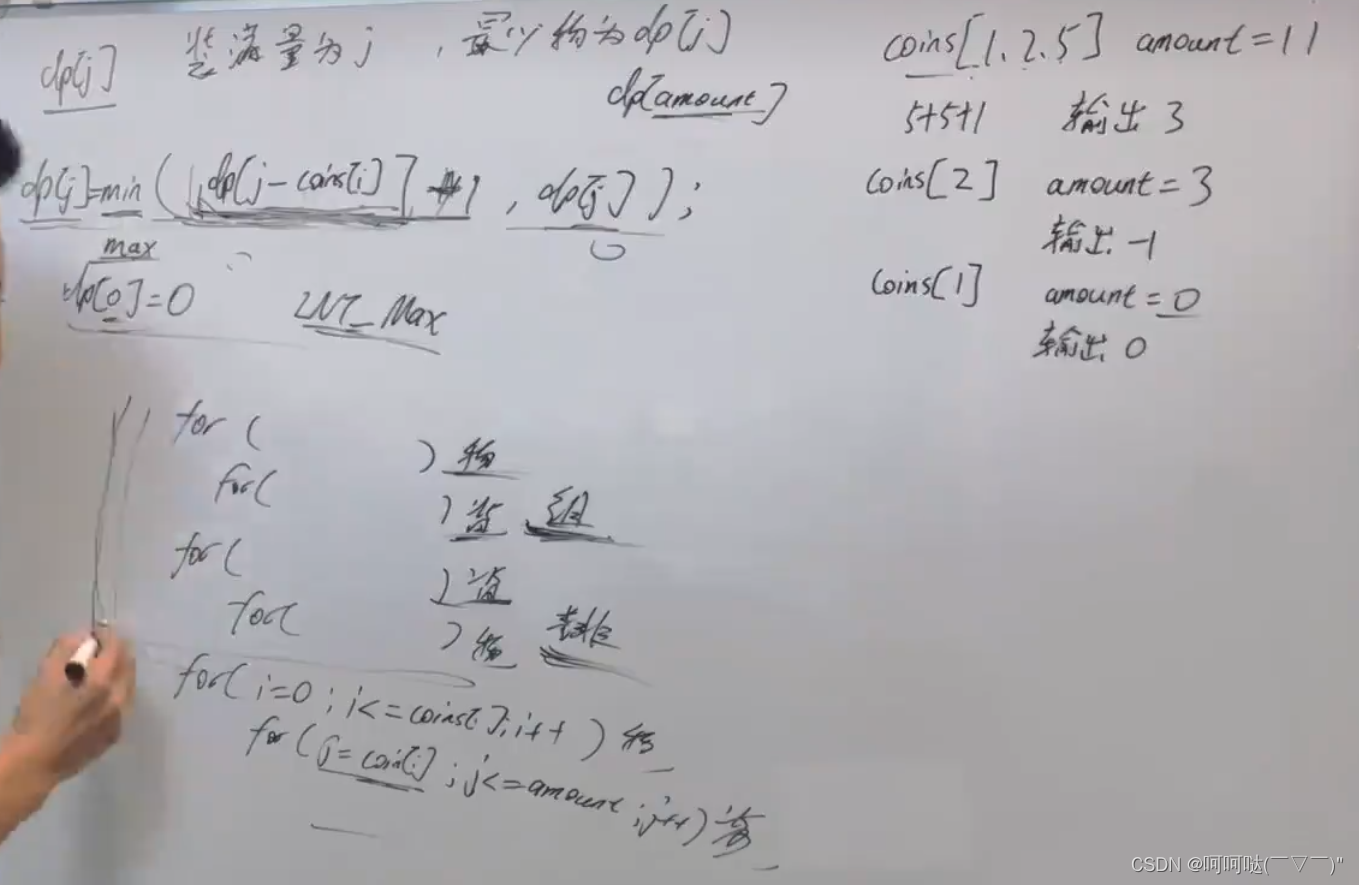 dp[j] 装满量为j ,最少物为dp[j]
dp[amount]
dp[j]=min(dp[j-coins[i]]+1, dp[j]);
max
dp[0]=0 INT_Max
coins[1,2,5] amount=11
5+5+1 输出 3
coins[2] amount=3
输出 -1
coins[1] amount=0
输出 0
for( ) 物
for( ) 背 组
for( ) 背
for( ) 物 排
for(i=0;i<=coins[];i++) 物
for(j=coin[i];j<=amount;j++) 背
CSDN @呵呵哒(￣▽￣)"